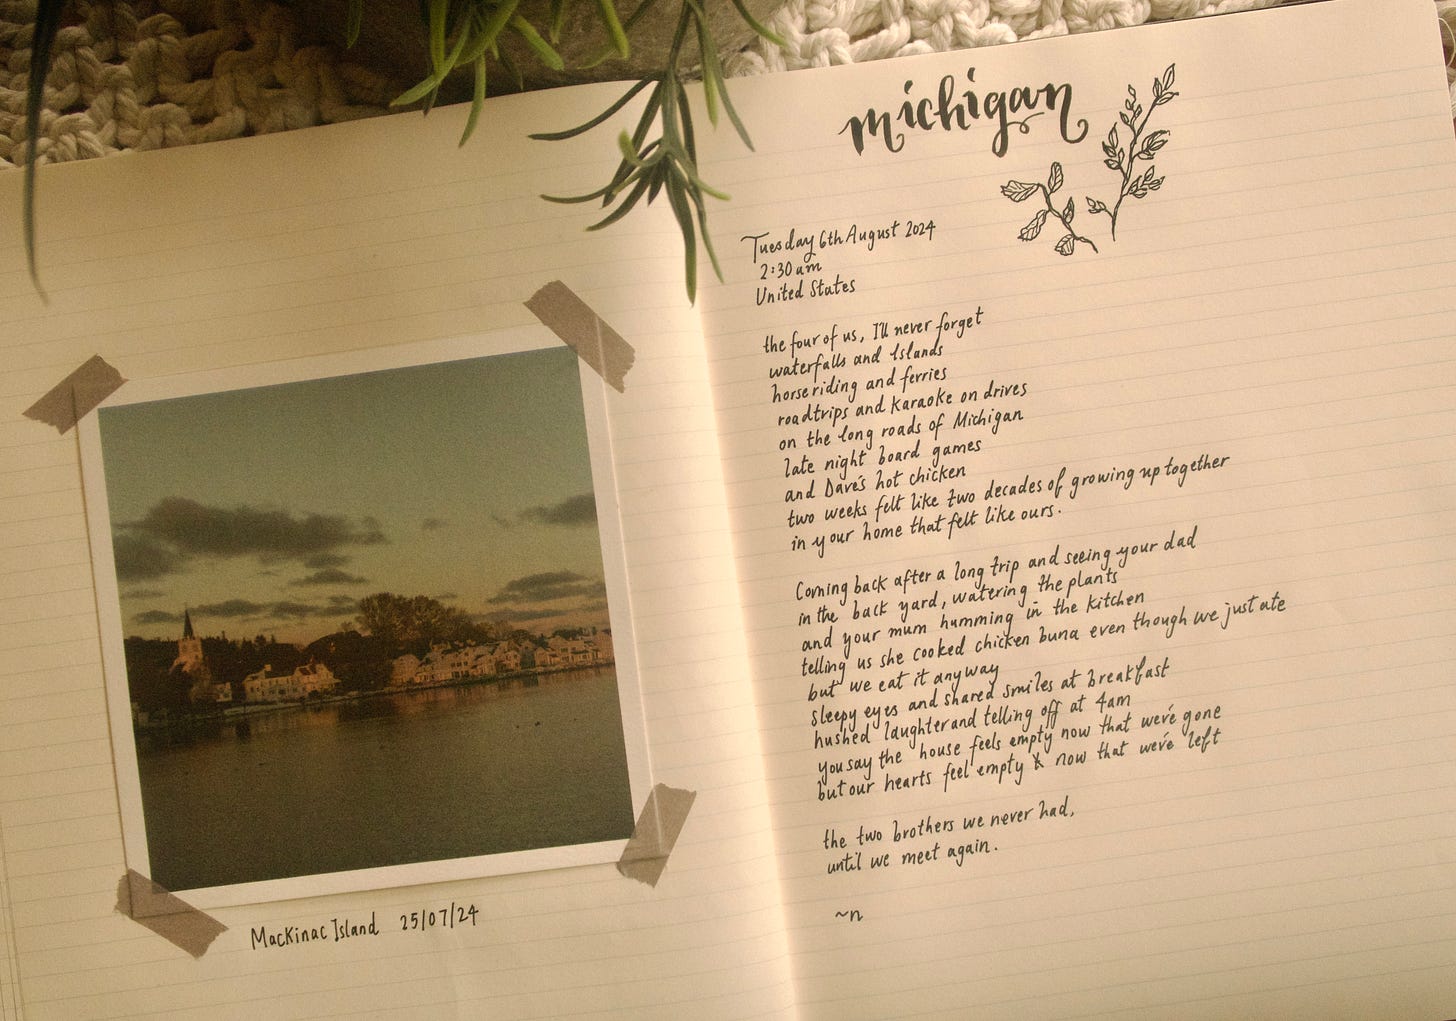 michigan
Tuesday 6th August 2024
2:30 am
United States
the four of us, I'll never forget
waterfalls and Islands
horseriding and ferries
roadtrips and karaoke on drives
on the long roads of Michigan
late night board games
and Dave's hot chicken
two weeks felt like two decades of growing up together
in your home that felt like ours.
Coming back after a long trip and seeing your dad
in the back yard, watering the plants
and your mum humming in the kitchen
telling us she cooked chicken buna even though we just ate
but we eat it anyway
sleepy eyes and shared smiles at breakfast
hushed laughter and telling off at 4am
you say the house feels empty now that we've gone
but our hearts feel empty & now that we've left
the two brothers we never had,
until we meet again.
~n
Mackinac Island 25/07/24